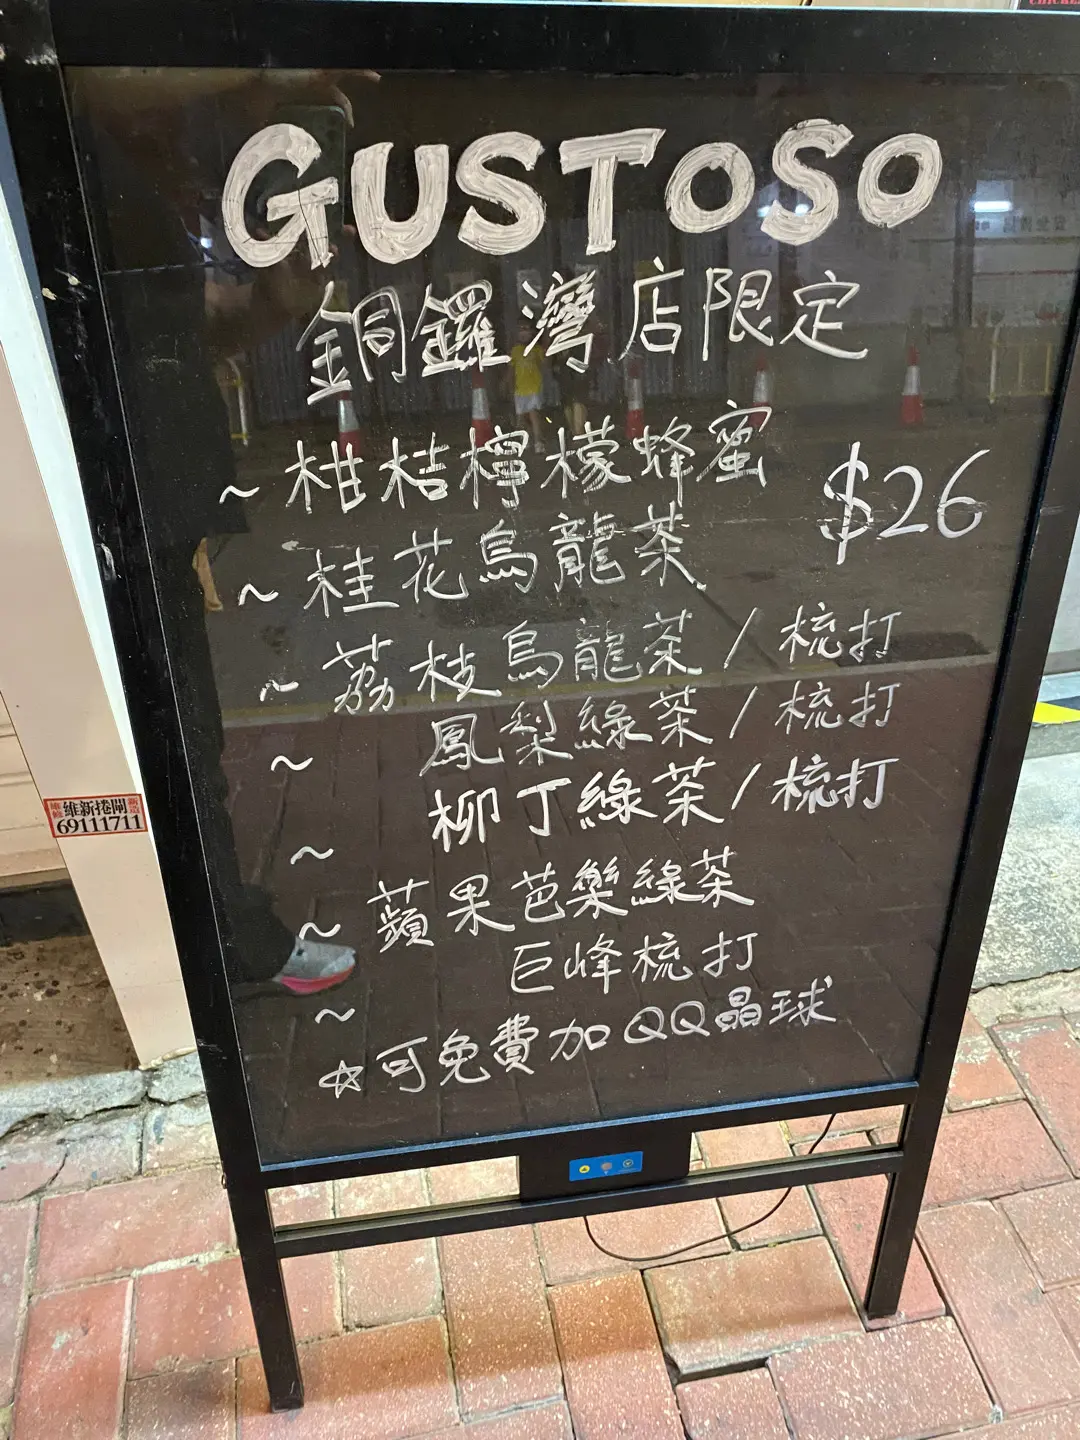 GUSTOSO
銅鑼灣店限定
~ 柑桔檸檬蜂蜜
$26
~ 桂花烏龍茶
~ 荔枝烏龍茶/梳打
~ 鳳梨綠茶/梳打
~ 柳丁綠茶/梳打
~ 蘋果芭樂綠茶
~ 巨峰梳打
☆可免費加QQ晶球
維修 維新捲閘 新造
69111711